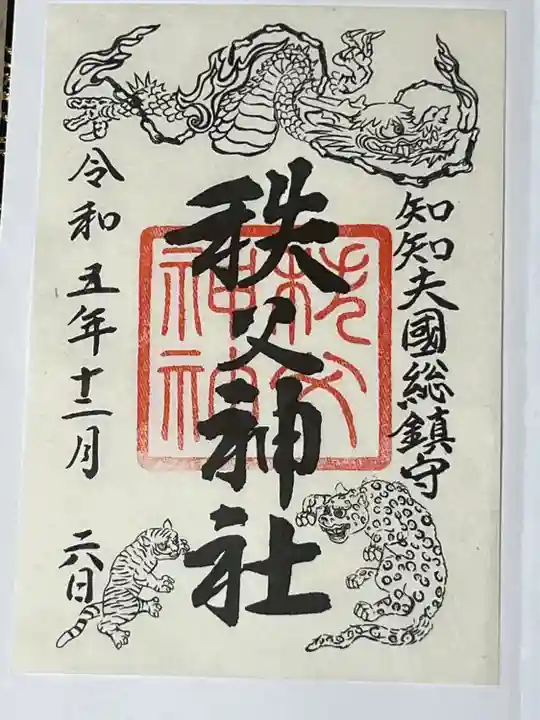 知知夫國総鎮守
秩父神社
秩父神社
令和五年十二月六日